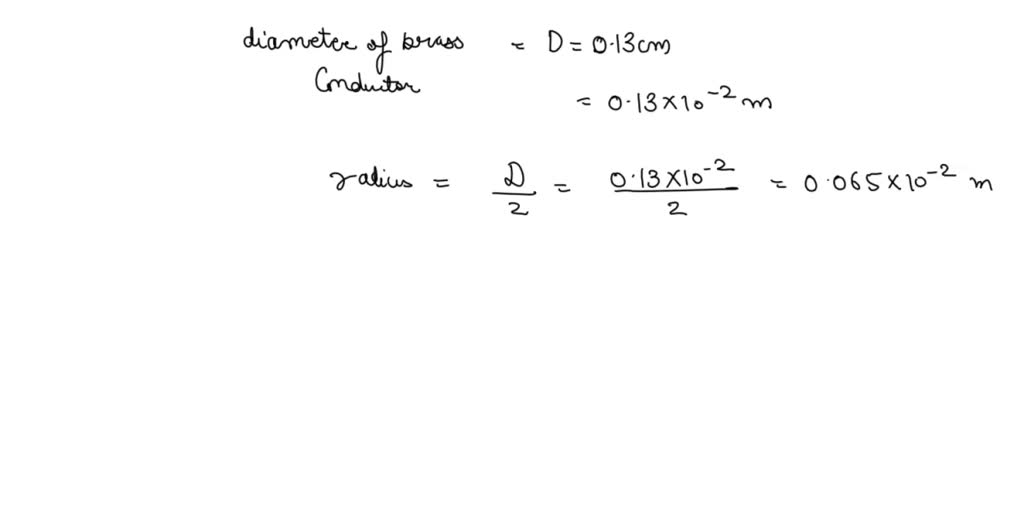 diameter of brass = D = 0.13cm
Conductor
= 0.13×10⁻² m
radius = D/2 = 0.13×10⁻²/2 = 0.065×10⁻² m